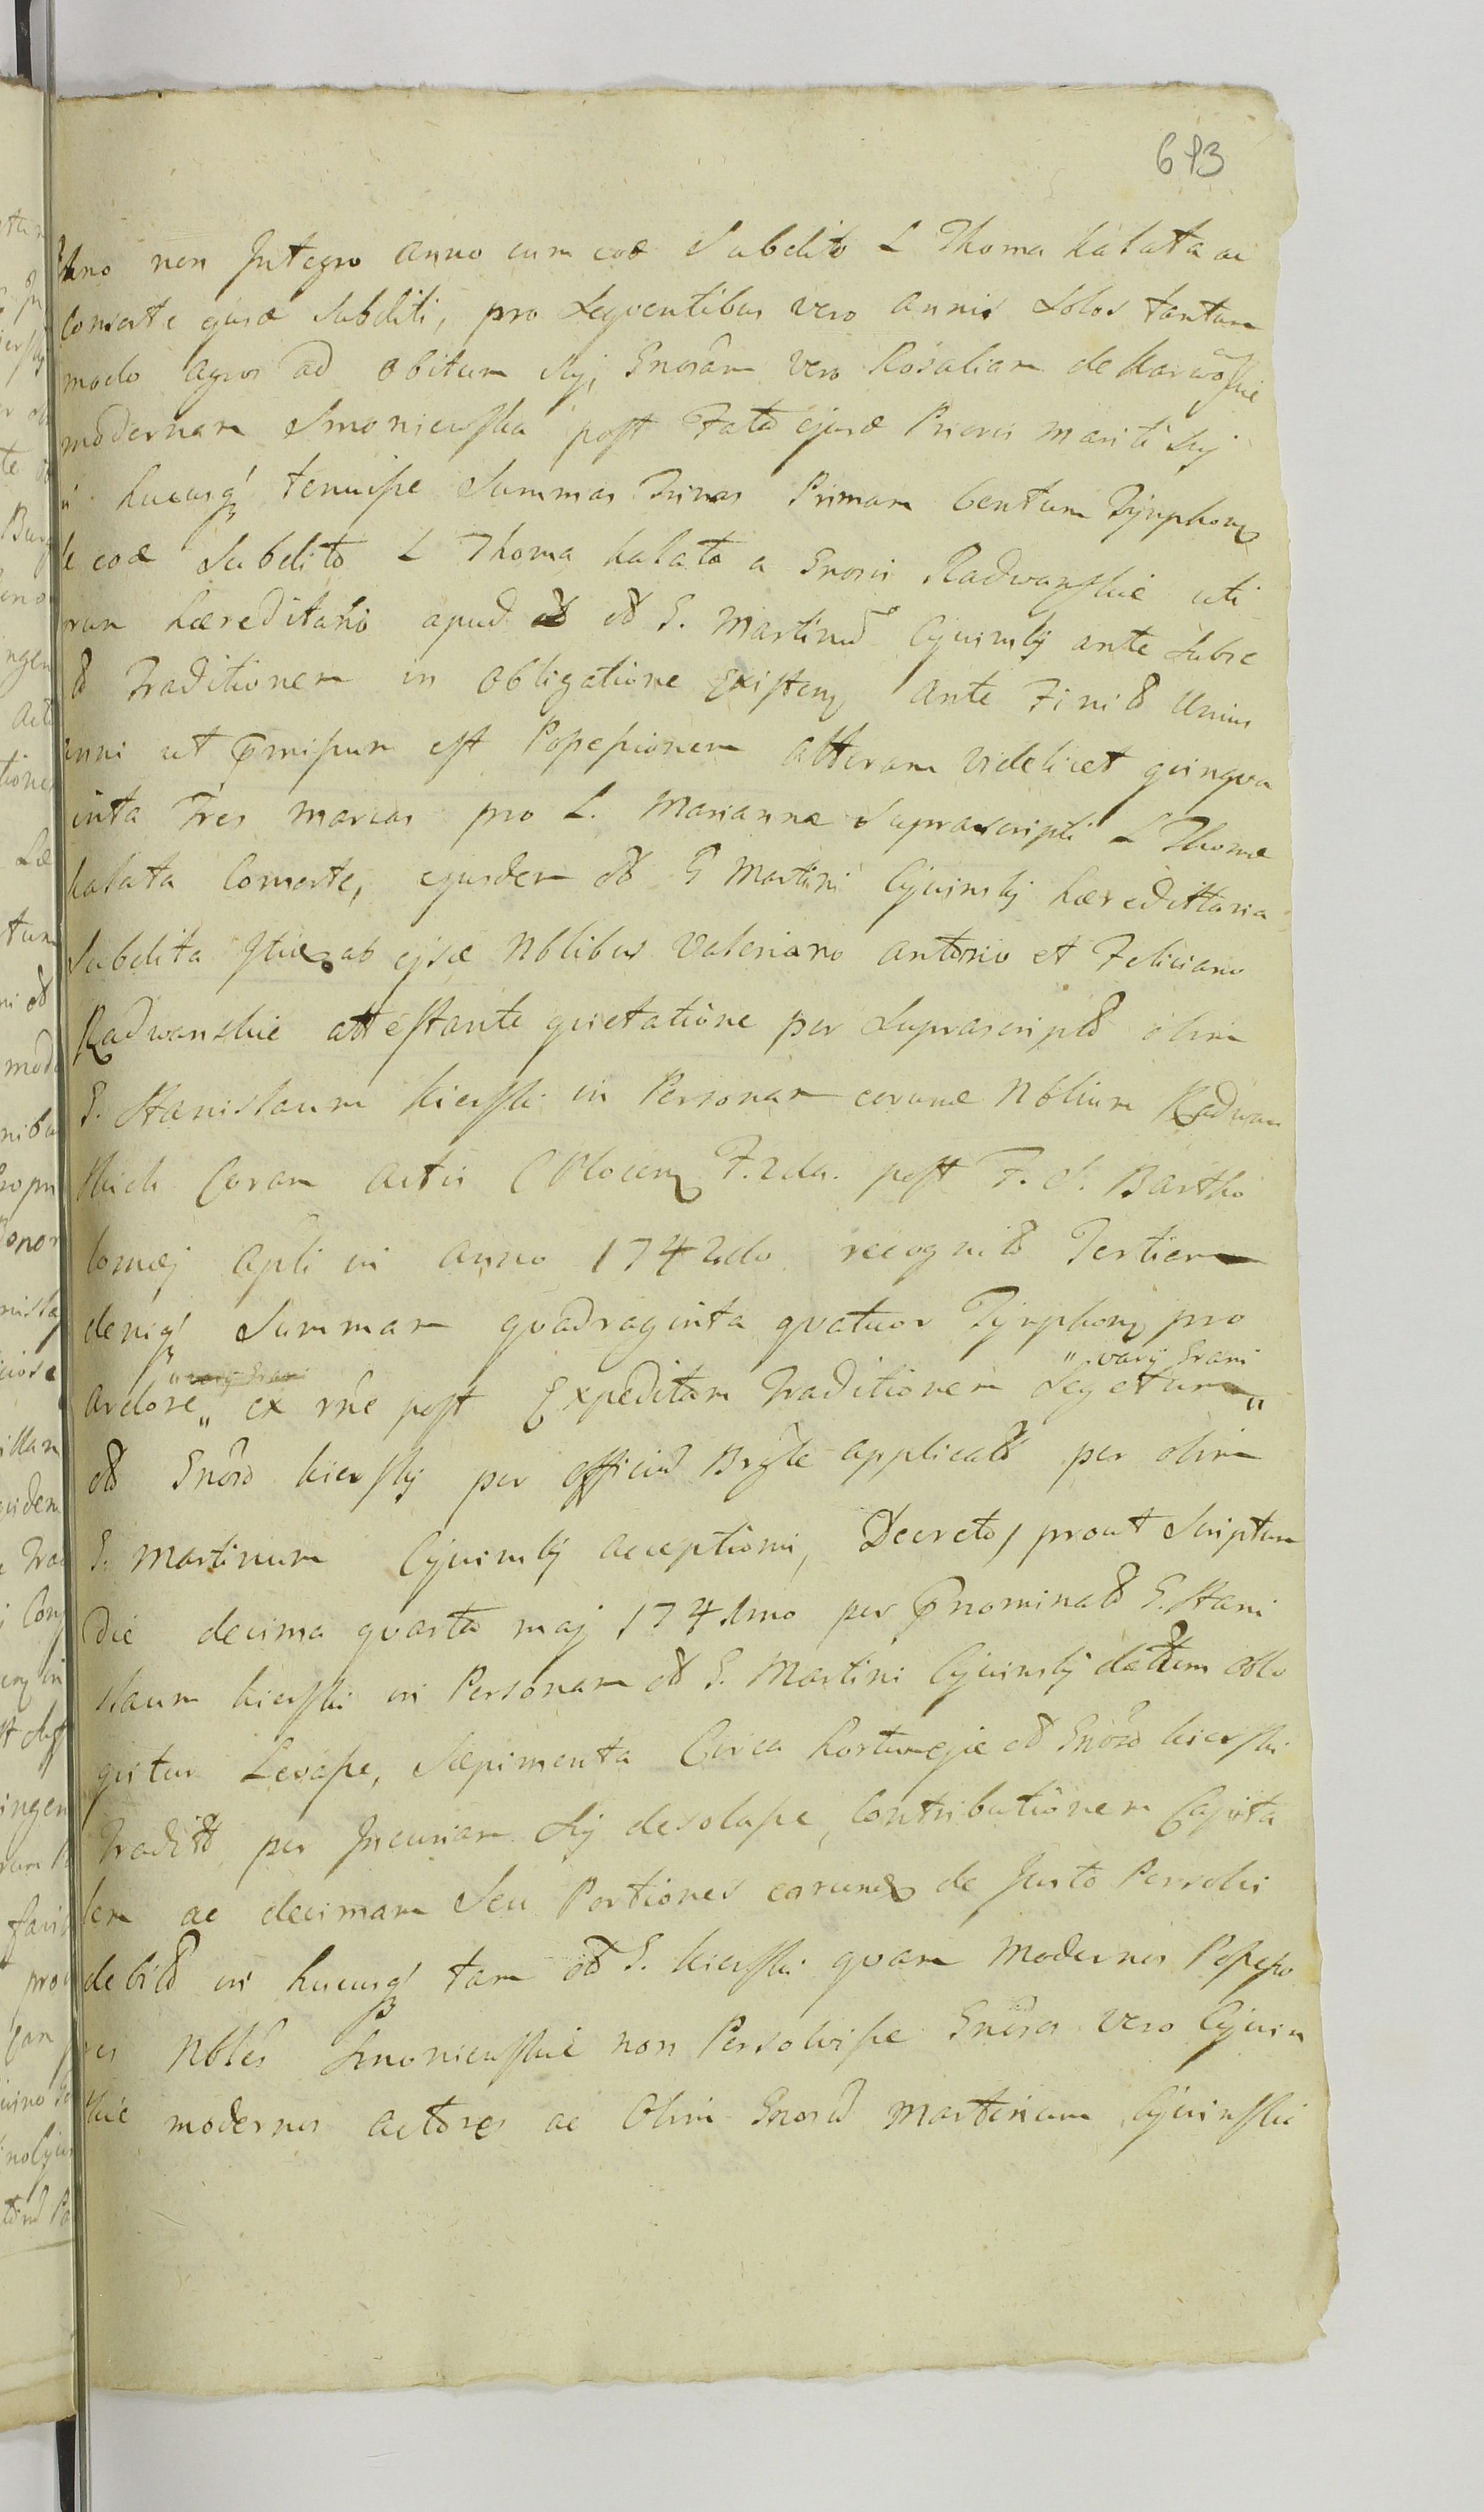 693
Uno non Integro anno cum eod Subdito L Thoma kalata ac
Consorte ejusd Subditi, pro Seqventibus vero annis Solos tantum
modo agros ad obitum Sui, Gnosam vero Rosaliam de karwoskie
modernam Smoniewska post Fata ejusd Prioris mariti Sui
hucusq tenuisse Summas Trinas Primam Centum Tynphonz
eod Subdito L Thoma kalata a Gnosis Radwanskie uti
hæreditario apud od G. Martinũ Cywinskÿ ante Subse
Traditionem in obligatione Existenz ante Finitt Unius
anni ut pmissum est Possessionem alteram videlicet qvinqva
ginta Tres marcas pro L. Marianna Suprascripti L Thomæ
kalata Consorte, ejusdem od G Martini Cywinskÿ hæreditaria
Subdita ab ejsd Nblibus Valeriano antonio et Feliciano
Radwanskie attestante qvietatione per Suprascriptt olim
G. Stanislaum kierski in Personam eorumd Nblium Radwan
skich Coram actis Plocenz F. 2da. post F. S. Bartho
lomæj apli in anno 1742do recognitt Tertiam
deniq Summam qvadraginta qvatuor Tynphonz pro
ardore „ ex rne post Expeditam Traditionem Segetum „
„ varÿ Grani
od Gnoso kierskÿ per officiũ applicatt per olim
G. Martinum Cywinskÿ acceptioni, Decreto, prout Scriptum
Die decima qvarta maj 1741mo per pnominatt G. Stani
slaum kierski in Personam od G. Martini Cywinskÿ datum oblo
qvitur Levasse, Sæpimenta Circa hortum od Gnoso kierski
Traditt per Incuriam Sui desolasse, Contributionem Capita
lem ac decimam Seu Portiones earund de Justo Persolvi
debitt in hucusq tam od G. kierski qvam Modernos Possesso
res Nbles Smoniewskie non Persolvisse Gnosos vero Cywin
skie modernos actores ac Olim Gnosũ Martinum Cywinskie